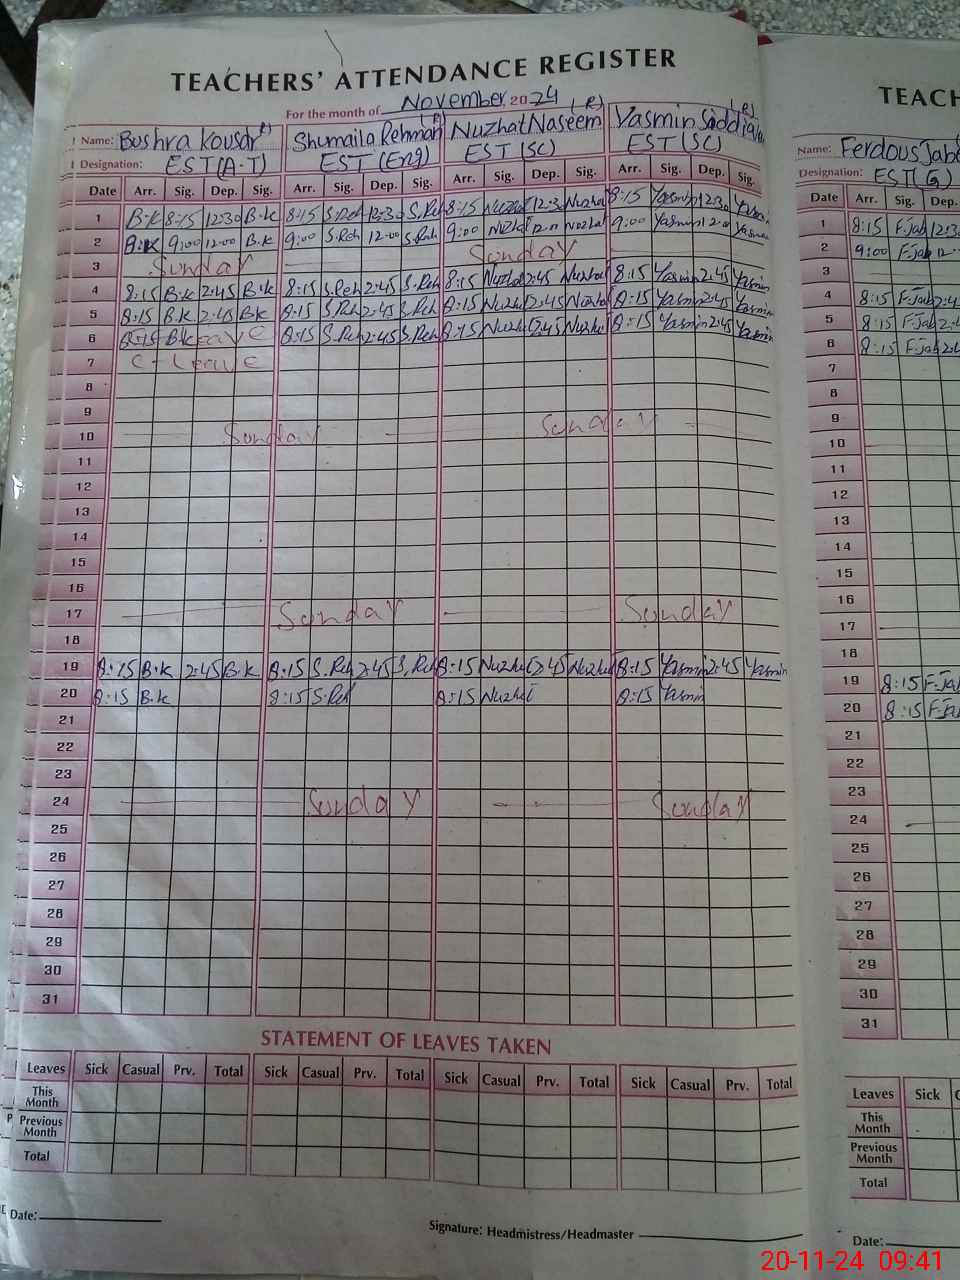 TEACHERS' ATTENDANCE REGISTER
For the month of November 2024
Name: Bushra Kousar (R) Shumaila Rehman (R) Nuzhat Naseem (R) Yasmin Siddiqui (R)
Designation: EST (A-T) EST (Eng) EST (SC) EST (SC)
Date Arr. Sig. Dep. Sig. Arr. Sig. Dep. Sig. Arr. Sig. Dep. Sig. Arr. Sig. Dep. Sig.
1 B.K 8:15 12:30 B.K 8:15 S.Reh 12:30 S.Reh 8:15 Nuzhat 12:30 Nuzhat 8:15 Yasmin 12:30 Yasmin
2 B.K 9:00 12:00 B.K 9:00 S.Reh 12:00 S.Reh 9:00 Nuzhat Nuzhat 9:00 Yasmin 12:00 Yasmin
3 Sunday Sunday
4 8:15 B.K 2:45 B.K 8:15 S.Reh 2:45 S.Reh 8:15 Nuzhat 2:45 Nuzhat 8:15 Yasmin 2:45 Yasmin
5 8:15 B.K 2:45 B.K 8:15 S.Reh 2:45 S.Reh 8:15 Nuzhat 2:45 Nuzhat 8:15 Yasmin 2:45 Yasmin
6 8:15 B.K Leave 8:15 S.Reh 2:45 S.Reh 8:15 Nuzhat 2:45 Nuzhat 8:15 Yasmin 2:45 Yasmin
7 C-Leave
8
9
10 Sunday Sunday
11
12
13
14
15
16
17 Sunday Sunday
18
19 8:15 B.K 2:45 B.K 8:15 S.Reh 2:45 S.Reh 8:15 Nuzhat 2:45 Nuzhat 8:15 Yasmin 2:45 Yasmin
20 8:15 B.K 8:15 S.Reh 8:15 Nuzhat 8:15 Yasmin
21
22
23
24 Sunday Sunday
25
26
27
28
29
30
31
STATEMENT OF LEAVES TAKEN
Leaves Sick Casual Prv. Total Sick Casual Prv. Total Sick Casual Prv. Total Sick Casual Prv. Total
This
Month
Previous
Month
Total
Date:
Signature: Headmistress/Headmaster
TEACH
Name: Ferdous Jabe
Designation: EST (G)
Date Arr. Sig. Dep.
1 8:15 F.Jab 12:3
2 9:00 F.Jab 12
3
4 8:15 F.Jab 2:4
5 8:15 F.Jab 2:
6 8:15 F.Jab 2:4
7
8
9
10
11
12
13
14
15
16
17
18
19 8:15 F.Ja
20 8:15 F.Ja
21
22
23
24
25
26
27
28
29
30
31
Leaves Sick C
This
Month
Previous
Month
Total
Date:
20-11-24 09:41